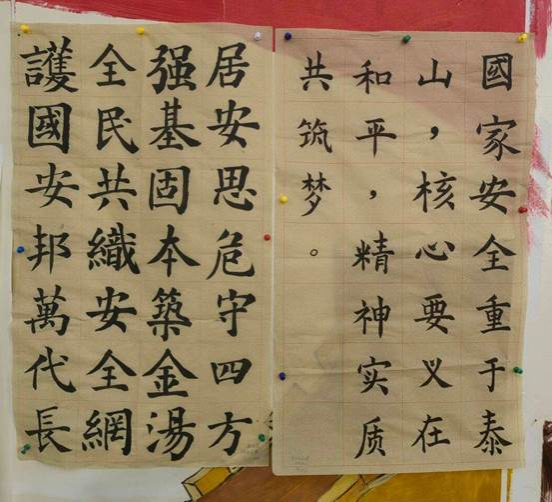 國家安全重于泰
山，核心要义在
和平，精神实质
共筑梦。
居安思危守四方
强基固本築金湯
全民共織安全網
護國安邦萬代長